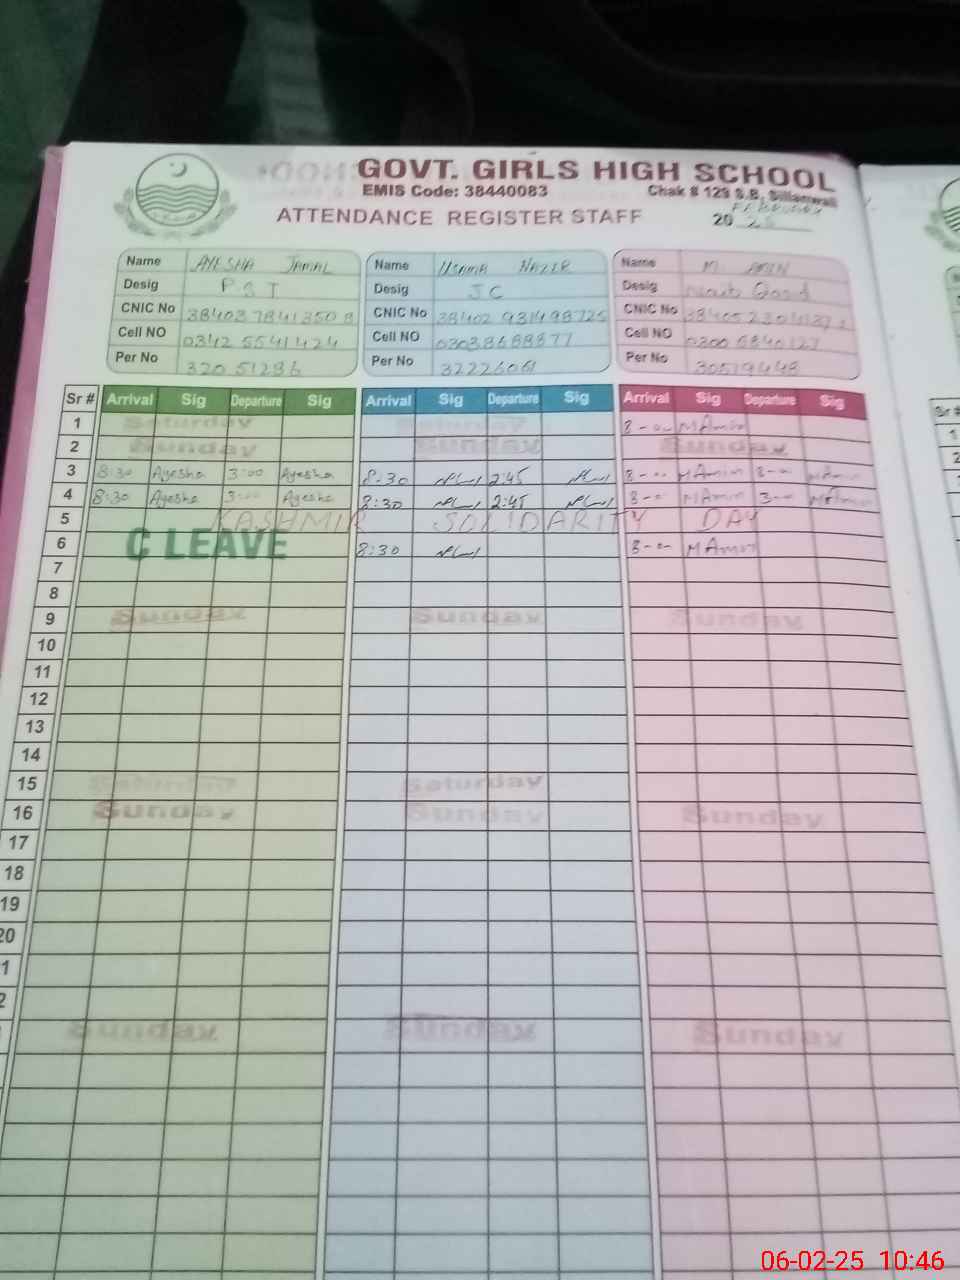 GOVT. GIRLS HIGH SCHOOL
EMIS Code: 38440083 Chak # 129 S.B, Sillanwali
ATTENDANCE REGISTER STAFF 20 25
FEBRUARY
Name AYESHA JAMAL Name USAMA NAZIR Name M. AMIN
Desig P S T Desig J C Desig Naib Qasid
CNIC No CNIC No CNIC No
Cell NO 0342 5541424 Cell NO 03038688877 Cell NO
Per No 320 51286 Per No 32226061 Per No 30519448
Sr # Arrival Sig Departure Sig Arrival Sig Departure Sig Arrival Sig Departure Sig
1 Saturday Saturday 8-00 MAmin
2 Sunday Sunday Sunday
3 8:30 Ayesha 3:00 Ayesha 8:30 2:45 8-00 MAmin 3-00 MAmin
4 8:30 Ayesha 3:00 Ayesha 8:30 2:45 8-00 MAmin 3-00 MAmin
5 KASHMIR SOLIDARITY DAY
6 C LEAVE 8:30 8-00 MAmin
7
8
9 Sunday Sunday Sunday
10
11
12
13
14
15 Saturday Saturday
16 Sunday Sunday Sunday
17
18
19
20
1
2
Sunday Sunday Sunday
06-02-25 10:46